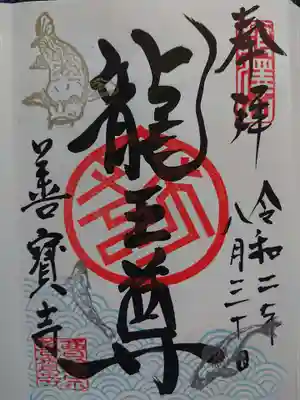 奉拝
令和二年
八月三十日
龍王尊
善寳寺